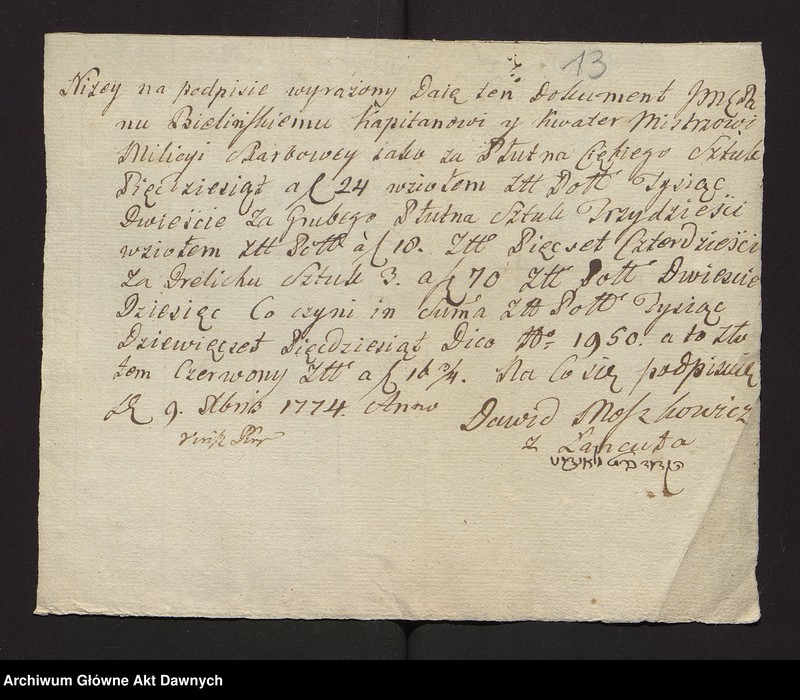 13
Niżey na podpisie wyrażony Daię ten Dokument
nu Bielińskiemu Kapitanowi y Kwater Mistrzowi
Milicyi Skarbowey iako za Płutna Ciękiego Sztuk
Pięcdziesiąt a f 24 wziołem Ztt Poll Tysiąc
Dwieście Za Grubego Płutna Sztuk Trzydzieści
wziołem Ztt Poll à f 18. Ztt Pięcset Czterdzieści
Za Drelichu Sztuk 3. a f 70 Ztt Poll Dwieście
Dziesięc Co czyni in Suma Ztt Poll Tysiąc
Dziewięcset Pięcdziesiąt Dico No 1950. a to Zło
tem Czerwony Ztt a f 16 3/4. Na Co się podpisuię
D 9. Xbris 1774. Anno
Dawid Moszkowicz
z Łancuta
Archiwum Główne Akt Dawnych